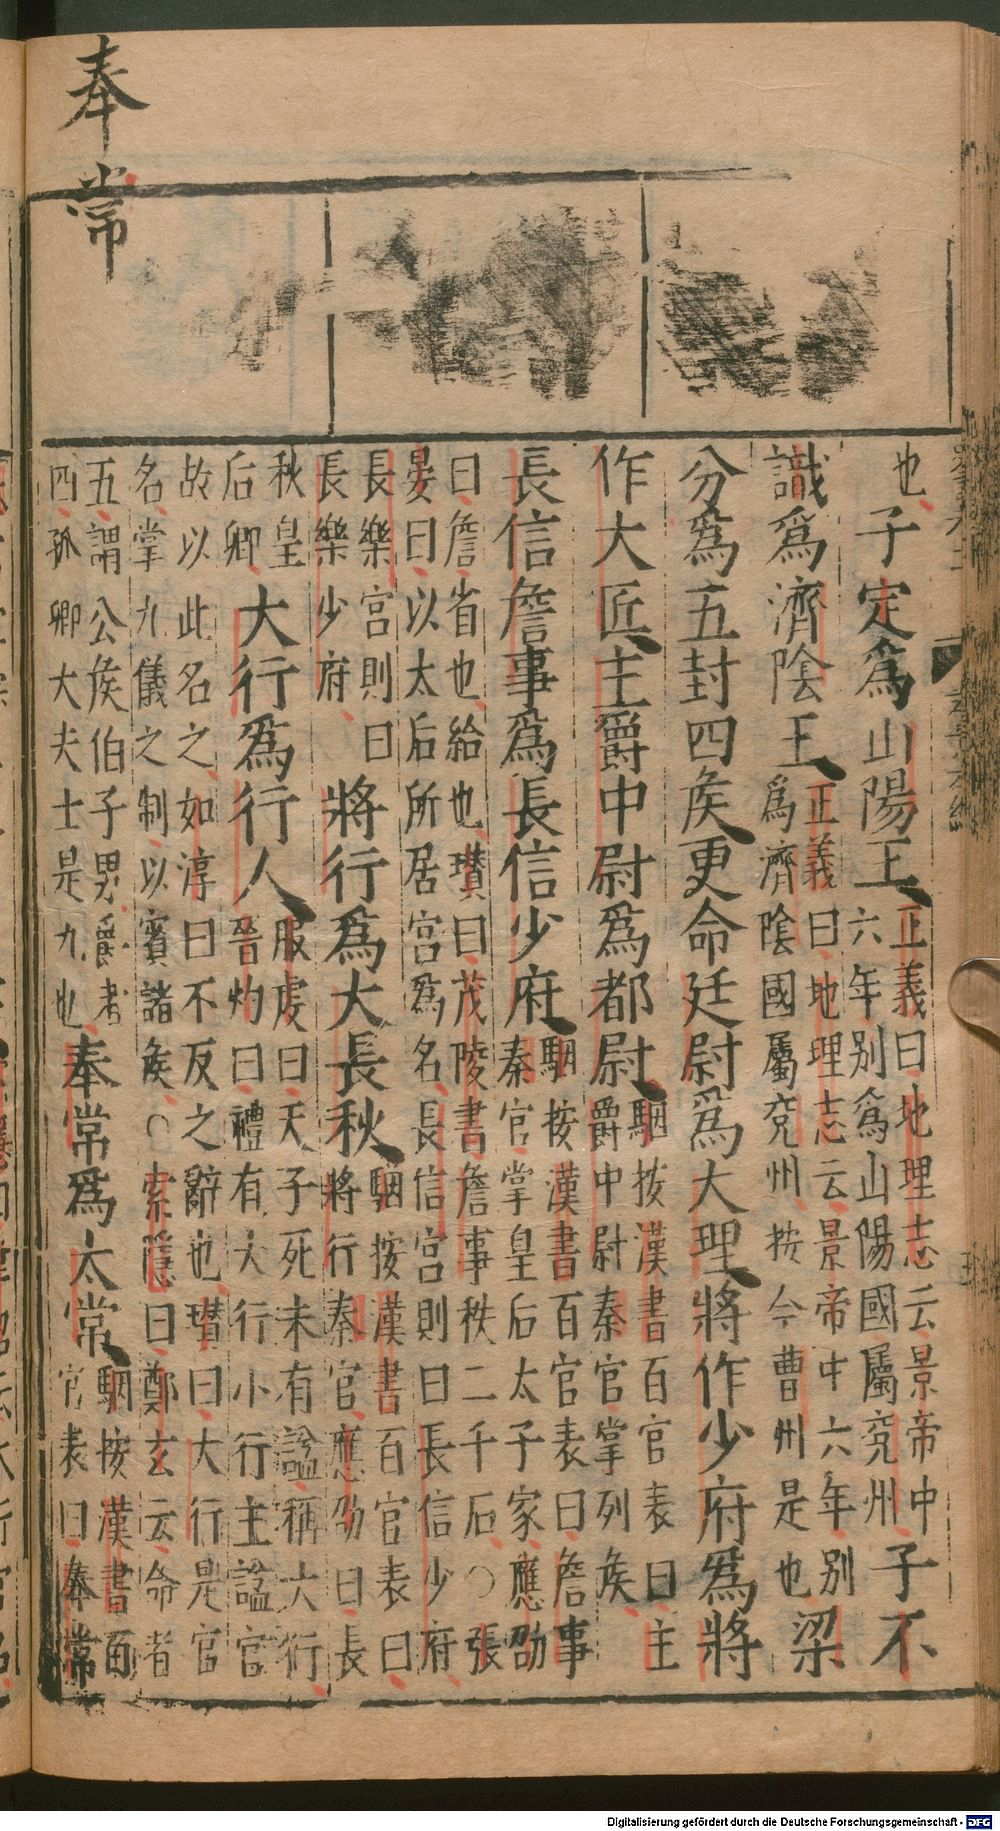 奉常
也子定爲山陽王正義曰地理志云景帝中
六年別爲山陽國屬兖州子不
識爲濟陰王正義曰地理志云景帝中六年別
爲濟陰國屬兖州按今曹州是也梁
分爲五封四矦更命廷尉爲大理將作少府爲將
作大匠主爵中尉爲都尉駰按漢書百官表曰主
爵中尉秦官掌列矦
長信詹事爲長信少府駰按漢書百官表曰詹事
秦官掌皇后太子家應劭
曰詹省也給也瓚曰茂陵書詹事秩二千石○張
晏曰以太后所居宮爲名長信宮則曰長信少府
長樂宮則曰
長樂少府將行爲大長秋駰按漢書百官表曰
將行秦官應劭曰長
秋皇
后卿大行爲行人服虔曰天子死未有諡稱大行
晉灼曰禮有大行小行主諡官
故以此名之如淳曰不反之辭也瓚曰大行是官
名掌九儀之制以賓諸矦○索隱曰鄭玄云命者
五謂公矦伯子男爵者
四孤卿大夫士是九也奉常爲太常駰按漢書百
官表曰奉常
Digitalisierung gefördert durch die Deutsche Forschungsgemeinschaft - DFG